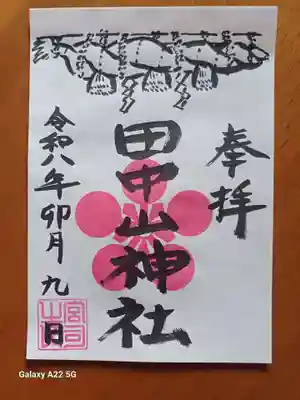 奉拝
田中山神社
令和八年卯月九日
Galaxy A22 5G